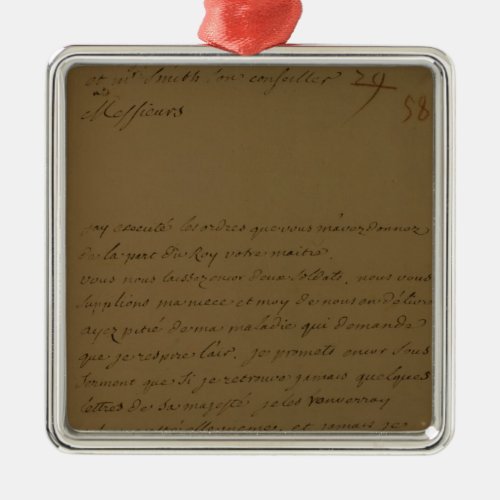 et mr Smith son conseiller 29
Messieurs 58
jay executé les ordres que vous mavez donnez
de la part du Roy votre maitre.
vous nous laissez encor deux soldats, nous vous
supplions ma niece et moy de nous en délivre
ayez pitié de ma maladie qui demande
que je respire lair. je promets encor sous
serment que si je retrouve jamais quelques
lettres de sa majesté je les renverray
et jamais je